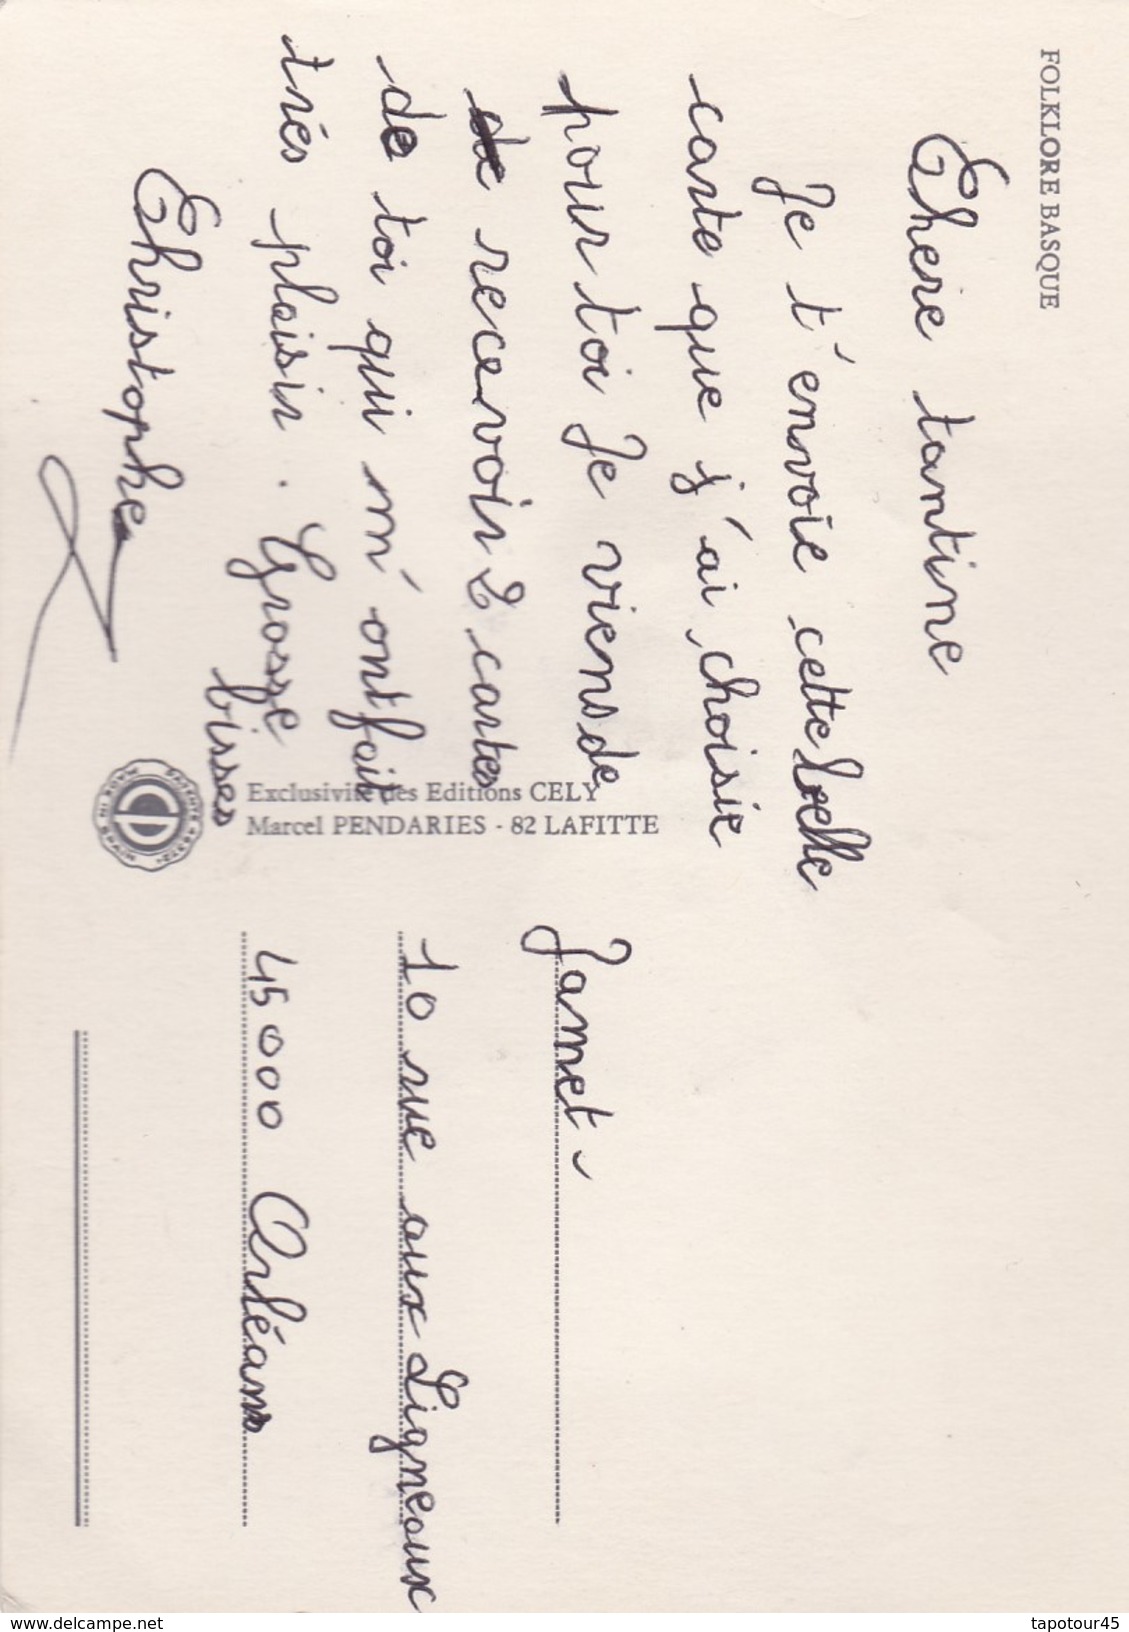 FOLKLORE BASQUE
Chere tantine
Je t'envoie cette belle
carte que j'ai choisie
pour toi Je viens de
de recevoir 2 cartes
de toi qui m'ont fait
très plaisir. Grosse
bisses
Christophe
Exclusivité des Editions CELY
Marcel PENDARIES - 82 LAFITTE
MADE IN SPAIN
Jamet -
10 rue aux Ligneaux
45000 Orléans
delcampe.net
tapotour45